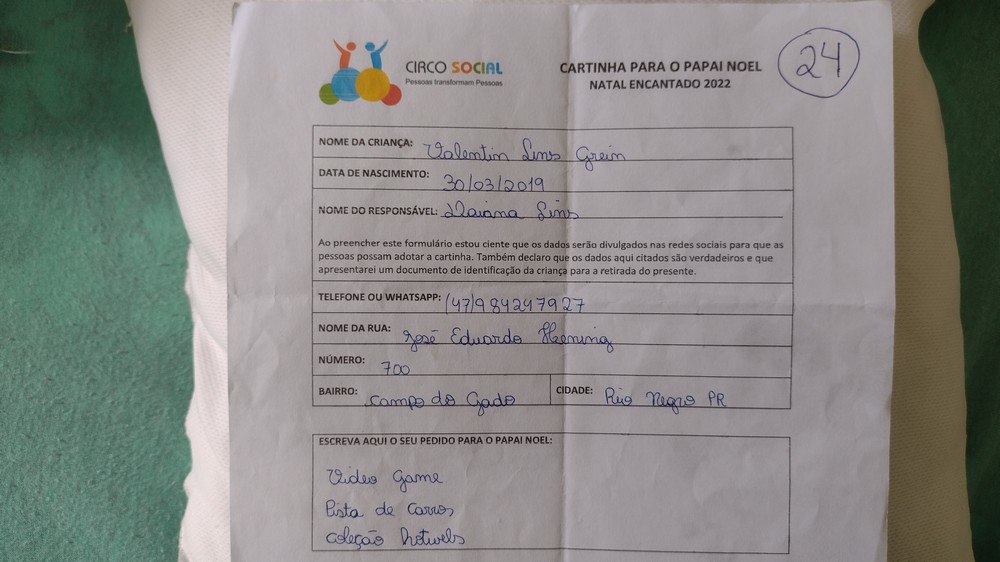 CIRCO SOCIAL
Pessoas transformam Pessoas
CARTINHA PARA O PAPAI NOEL
NATAL ENCANTADO 2022
24
NOME DA CRIANÇA: Valentin Lins Grein
DATA DE NASCIMENTO: 30/03/2019
NOME DO RESPONSÁVEL: Daiana Lins
Ao preencher este formulário estou ciente que os dados serão divulgados nas redes sociais para que as
pessoas possam adotar a cartinha. Também declaro que os dados aqui citados são verdadeiros e que
apresentarei um documento de identificação da criança para a retirada do presente.
TELEFONE OU WHATSAPP: (47)984247927
NOME DA RUA: José Eduardo
NÚMERO: 700
BAIRRO: Campo do Gado
CIDADE: Rio Negro PR
ESCREVA AQUI O SEU PEDIDO PARA O PAPAI NOEL:
Video Game
Pista de Carros
coleção hotwels